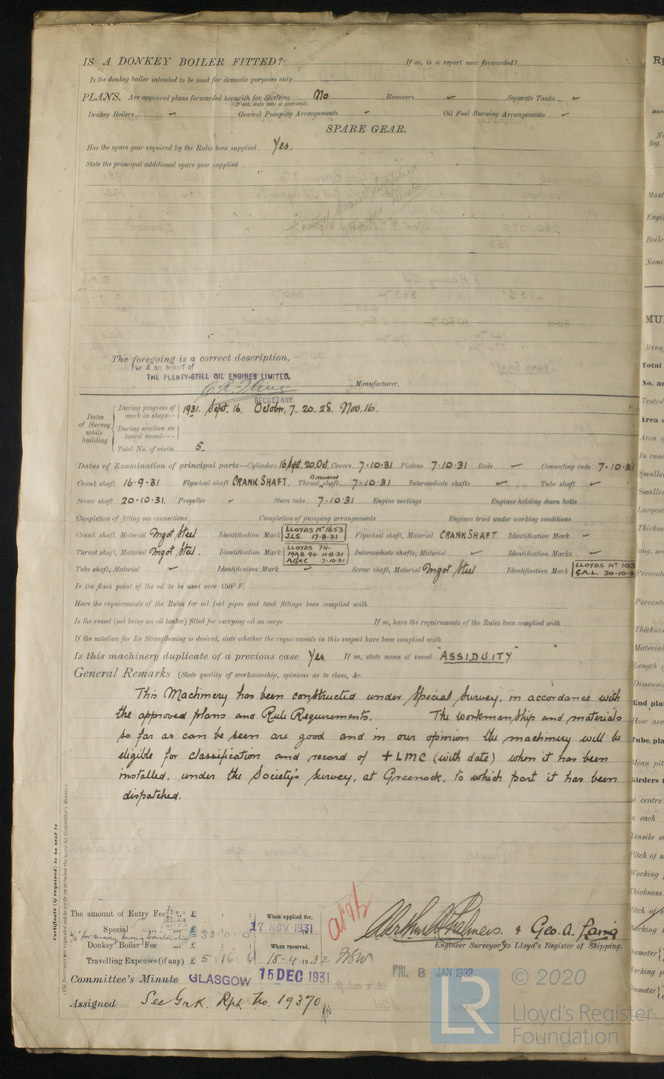 IS A DONKEY BOILER FITTED? If so, is a report now forwarded?
Is the donkey boiler intended to be used for domestic purposes only
PLANS. Are approved plans forwarded herewith for Shafting No Receivers ✓ Separate Tanks ✓
(If not, state date of approval)
Donkey Boilers ✓ General Pumping Arrangements ✓ Oil Fuel Burning Arrangements ✓
SPARE GEAR.
Has the spare gear required by the Rules been supplied Yes.
State the principal additional spare gear supplied
The foregoing is a correct description,
For & on behalf of
THE PLENTY-STILL OIL ENGINES LIMITED,
SECRETARY Manufacturer.
Dates of Survey while building
During progress of work in shops - - 1931. Sept. 16. October, 7. 20. 28. Nov. 16.
During erection on board vessel - - -
Total No. of visits 5.
Dates of Examination of principal parts—Cylinders 16 Sept. 20 Oct. Covers 7.10.31 Pistons 7.10.31 Rods — Connecting rods 7.10.31
Crank shaft 16.9.31 Flywheel shaft CRANK SHAFT. Thrust shaft 7.10.31 Intermediate shafts — Tube shaft —
Screw shaft 20.10.31. Propeller ✓ Stern tube 7.10.31 Engine seatings Engines holding down bolts
Completion of fitting sea connections Completion of pumping arrangements Engines tried under working conditions
Crank shaft, Material Ingot Steel Identification Mark LLOYDS No 1653 J.L.S. 17-8-31 Flywheel shaft, Material CRANK SHAFT Identification Mark —
Thrust shaft, Material Ingot Steel. Identification Mark LLOYDS 74. Intermediate shafts, Material — Identification Marks —
Tube shaft, Material — Identification Mark — Screw shaft, Material Ingot Steel Identification Mark LLOYDS No
Is the flash point of the oil to be used over 150° F.
Have the requirements of the Rules for oil fuel pipes and tank fittings been complied with
Is the vessel (not being an oil tanker) fitted for carrying oil as cargo If so, have the requirements of the Rules been complied with
If the notation for Ice Strengthening is desired, state whether the requirements in this respect have been complied with
Is this machinery duplicate of a previous case Yes If so, state name of vessel "ASSIDUITY"
General Remarks (State quality of workmanship, opinions as to class, &c.
This Machinery has been constructed under Special Survey, in accordance with
the approved plans and Rule Requirements. The workmanship and materials
so far as can be seen are good and in our opinion the machinery will be
eligible for classification and record of + LMC (with date) when it has been
installed, under the Society's survey, at Greenock, to which port it has been
dispatched.
The amount of Entry Fee £ : : When applied for,
Special £ 33 : 0 : 0 17 NOV 1931
Donkey Boiler Fee £ : : When received,
Travelling Expenses (if any) £ 5 : 16 : 18.4.1932
Geo. A. Laing
Engineer Surveyor to Lloyd's Register of Shipping.
Committee's Minute GLASGOW 15 DEC 1931 FRI. 8 JAN 1932
Assigned See Grk. Rpt. No. 19370
© 2020
LR
Lloyd's Register
Foundation